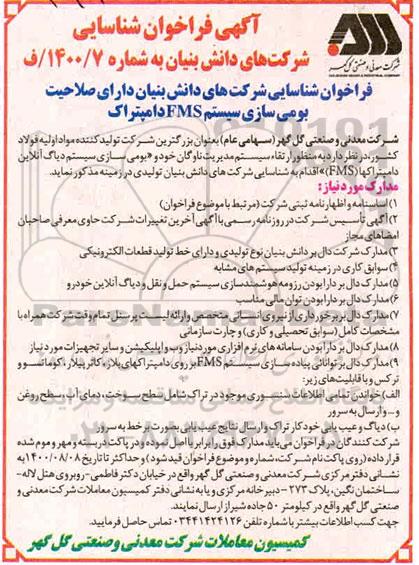 آگهی فراخوان شناسایی
شرکت‌های دانش بنیان به شماره ۱۴۰۰/۷/ف
شرکت معدنی و صنعتی گل گهر
فراخوان شناسایی شرکت های دانش بنیان دارای صلاحیت
بومی سازی سیستم FMS دامپتراک
شرکت معدنی و صنعتی گل گهر (سهامی عام) بعنوان بزرگترین شرکت تولیدکننده مواد اولیه فولاد
کشور در نظر دارد به منظور ارتقاء سیستم مدیریت ناوگان خود و «بومی سازی سیستم دیاگ آنلاین
دامپتراکها (FMS)» اقدام به شناسایی شرکت های دانش بنیان تولیدی در زمینه مذکور نماید.
مدارک مورد نیاز:
۱) اساسنامه و اظهارنامه ثبتی شرکت (مرتبط با موضوع فراخوان)
۲) آگهی تأسیس شرکت در روزنامه رسمی با آگهی آخرین تغییرات شرکت حاوی معرفی صاحبان
امضاهای مجاز
۳) مدارک شرکت دال بر دانش بنیان نوع تولیدی و دارای خط تولید قطعات الکترونیکی
۴) سوابق کاری در زمینه تولید سیستم های مشابه
۵) مدارک دال بر دارا بودن رزومه هوشمندسازی سیستم حمل و نقل و دیاگ آنلاین خودرو
۶) مدارک دال بر دارا بودن توان مالی مناسب
۷) مدارک دال بر برخورداری از نیروی انسانی متخصص و ارائه لیست پرسنل تمام وقت شرکت همراه با
مشخصات کامل (سوابق تحصیلی و کاری) و چارت سازمانی
۸) مدارک دال بر دارا بودن سامانه های نرم افزاری مورد نیاز وب و اپلیکیشن و سایر تجهیزات مورد نیاز
۹) مدارک دال بر توانائی پیاده سازی سیستم FMS بر روی دامپتراکهای بلاز، کاترپیلار، کوماتسو و
ترکس و با قابلیت های زیر:
الف) خواندن تمامی اطلاعات سنسوری موجود در تراک شامل سطح سوخت، دمای آب، سطح روغن
و... و ارسال به سرور
ب) دیاگ و عیب یابی خودکار تراک و ارسال نتایج عیب یابی بصورت بر خط به سرور
شرکت کنندگان در فراخوان می‌باید مدارک فوق را برابر با اصل نموده و در پاکت دربسته و مهر و موم شده
قرار داده (روی پاکت نام شرکت، شماره و موضوع فراخوان قید شود) و حداکثر تا تاریخ ۱۴۰۰/۰۸/۰۸ به
نشانی دفتر مرکزی شرکت معدنی و صنعتی گل گهر واقع در خیابان دکتر فاطمی- روبروی هتل لاله-
ساختمان نگین، پلاک ۲۷۳ - دبیرخانه مرکزی و یا به نشانی دفتر کمیسیون معاملات شرکت معدنی و
صنعتی گل گهر واقع در کیلومتر ۵۰ جاده شیراز ارسال نمایند.
جهت کسب اطلاعات بیشتر با شماره تلفن ۰۳۴۴۱۴۲۴۱۲۶ تماس حاصل فرمایید.
کمیسیون معاملات شرکت معدنی و صنعتی گل گهر